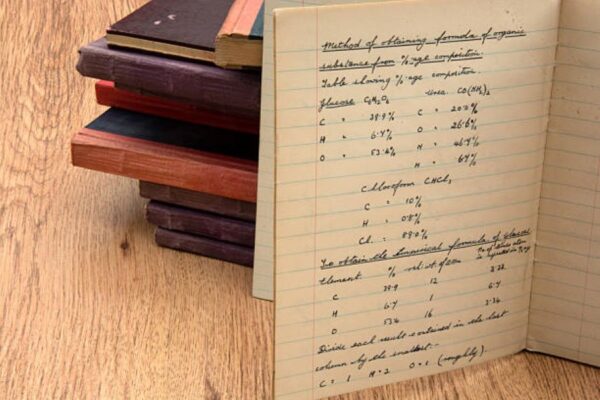 Method of obtaining formula of organic
substance from %age composition.
Table showing %age composition.
Glucose C6H12O6 Urea. CO(NH2)2
C = 39.9% C = 20.0%
H " 6.7% O " 26.6%
O " 53.4% N " 46.7%
H " 6.7%
Chloroform CHCl3
C = 10%
H = 0.8%
Cl. = 89.0%
To obtain the Empirical formula of Glucose
Element. % rel. at. of Elem No of times atom
is repeated in
C 39.9 12 3.32
H 6.7 1 6.7
O 53.4 16 3.34
Divide each result obtained in the last
column by the smallest:-
C = 1 H = 2 O = 1 (roughly).